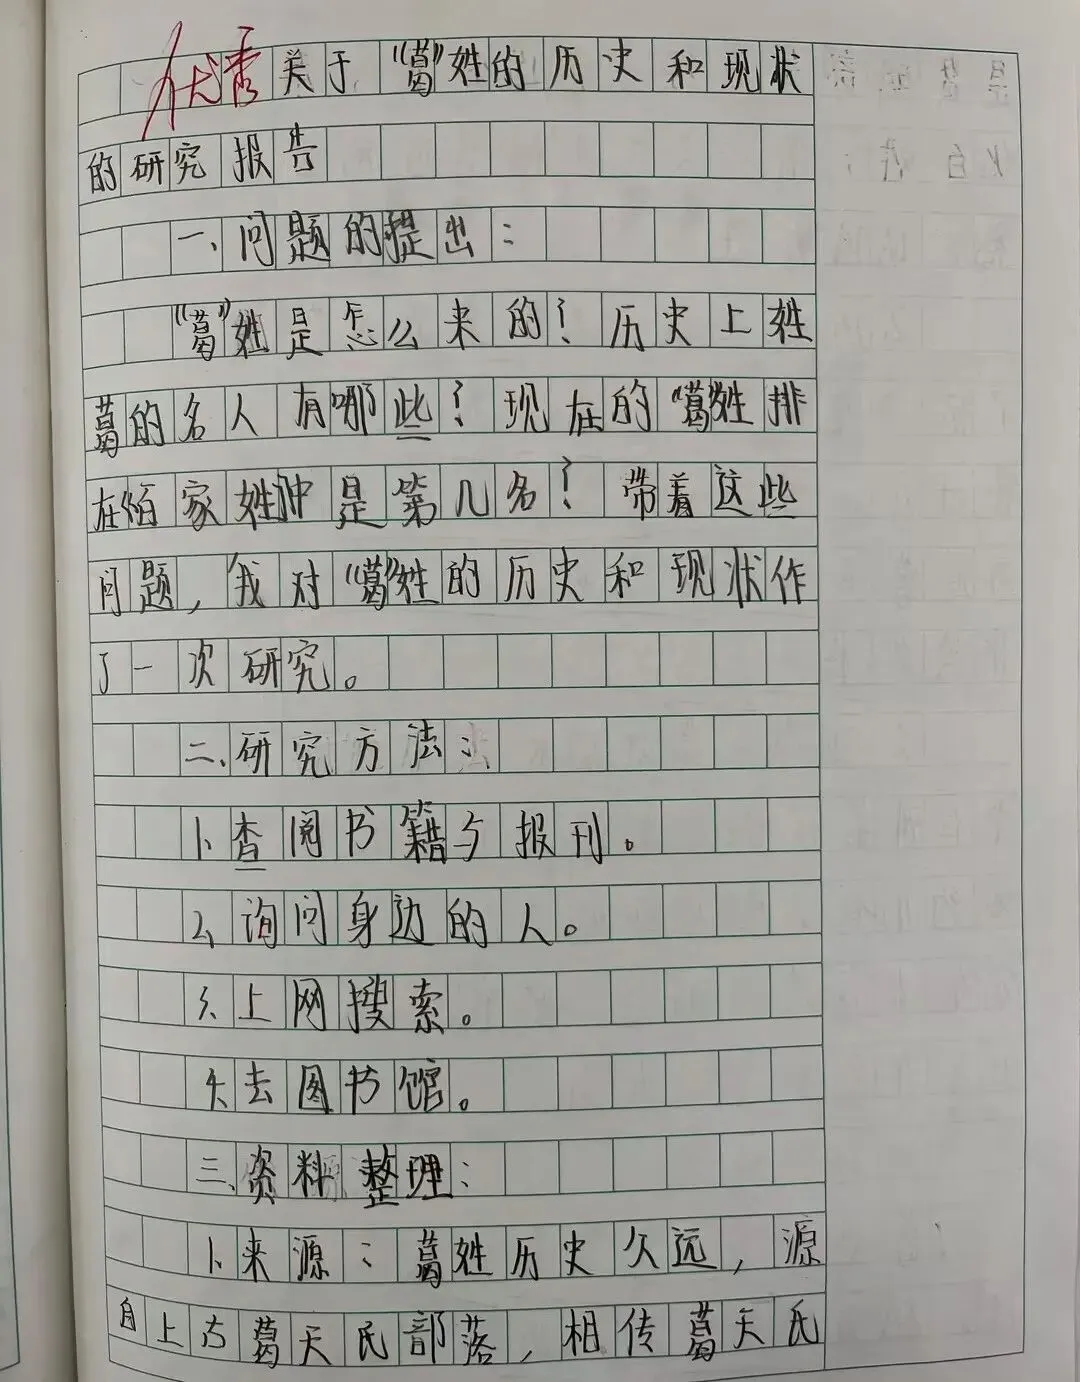 优秀 关于“葛”姓的历史和现状
的研究报告
一、问题的提出：
“葛”姓是怎么来的？历史上姓
葛的名人有哪些？现在的“葛”姓排
在《百家姓》中是第几名？带着这些
问题，我对“葛”姓的历史和现状作
了一次研究。
二、研究方法：
1、查阅书籍与报刊。
2、询问身边的人。
3、上网搜索。
4、去图书馆。
三、资料整理：
1、来源：葛姓历史久远，源
自上古葛天民部落，相传葛天氏